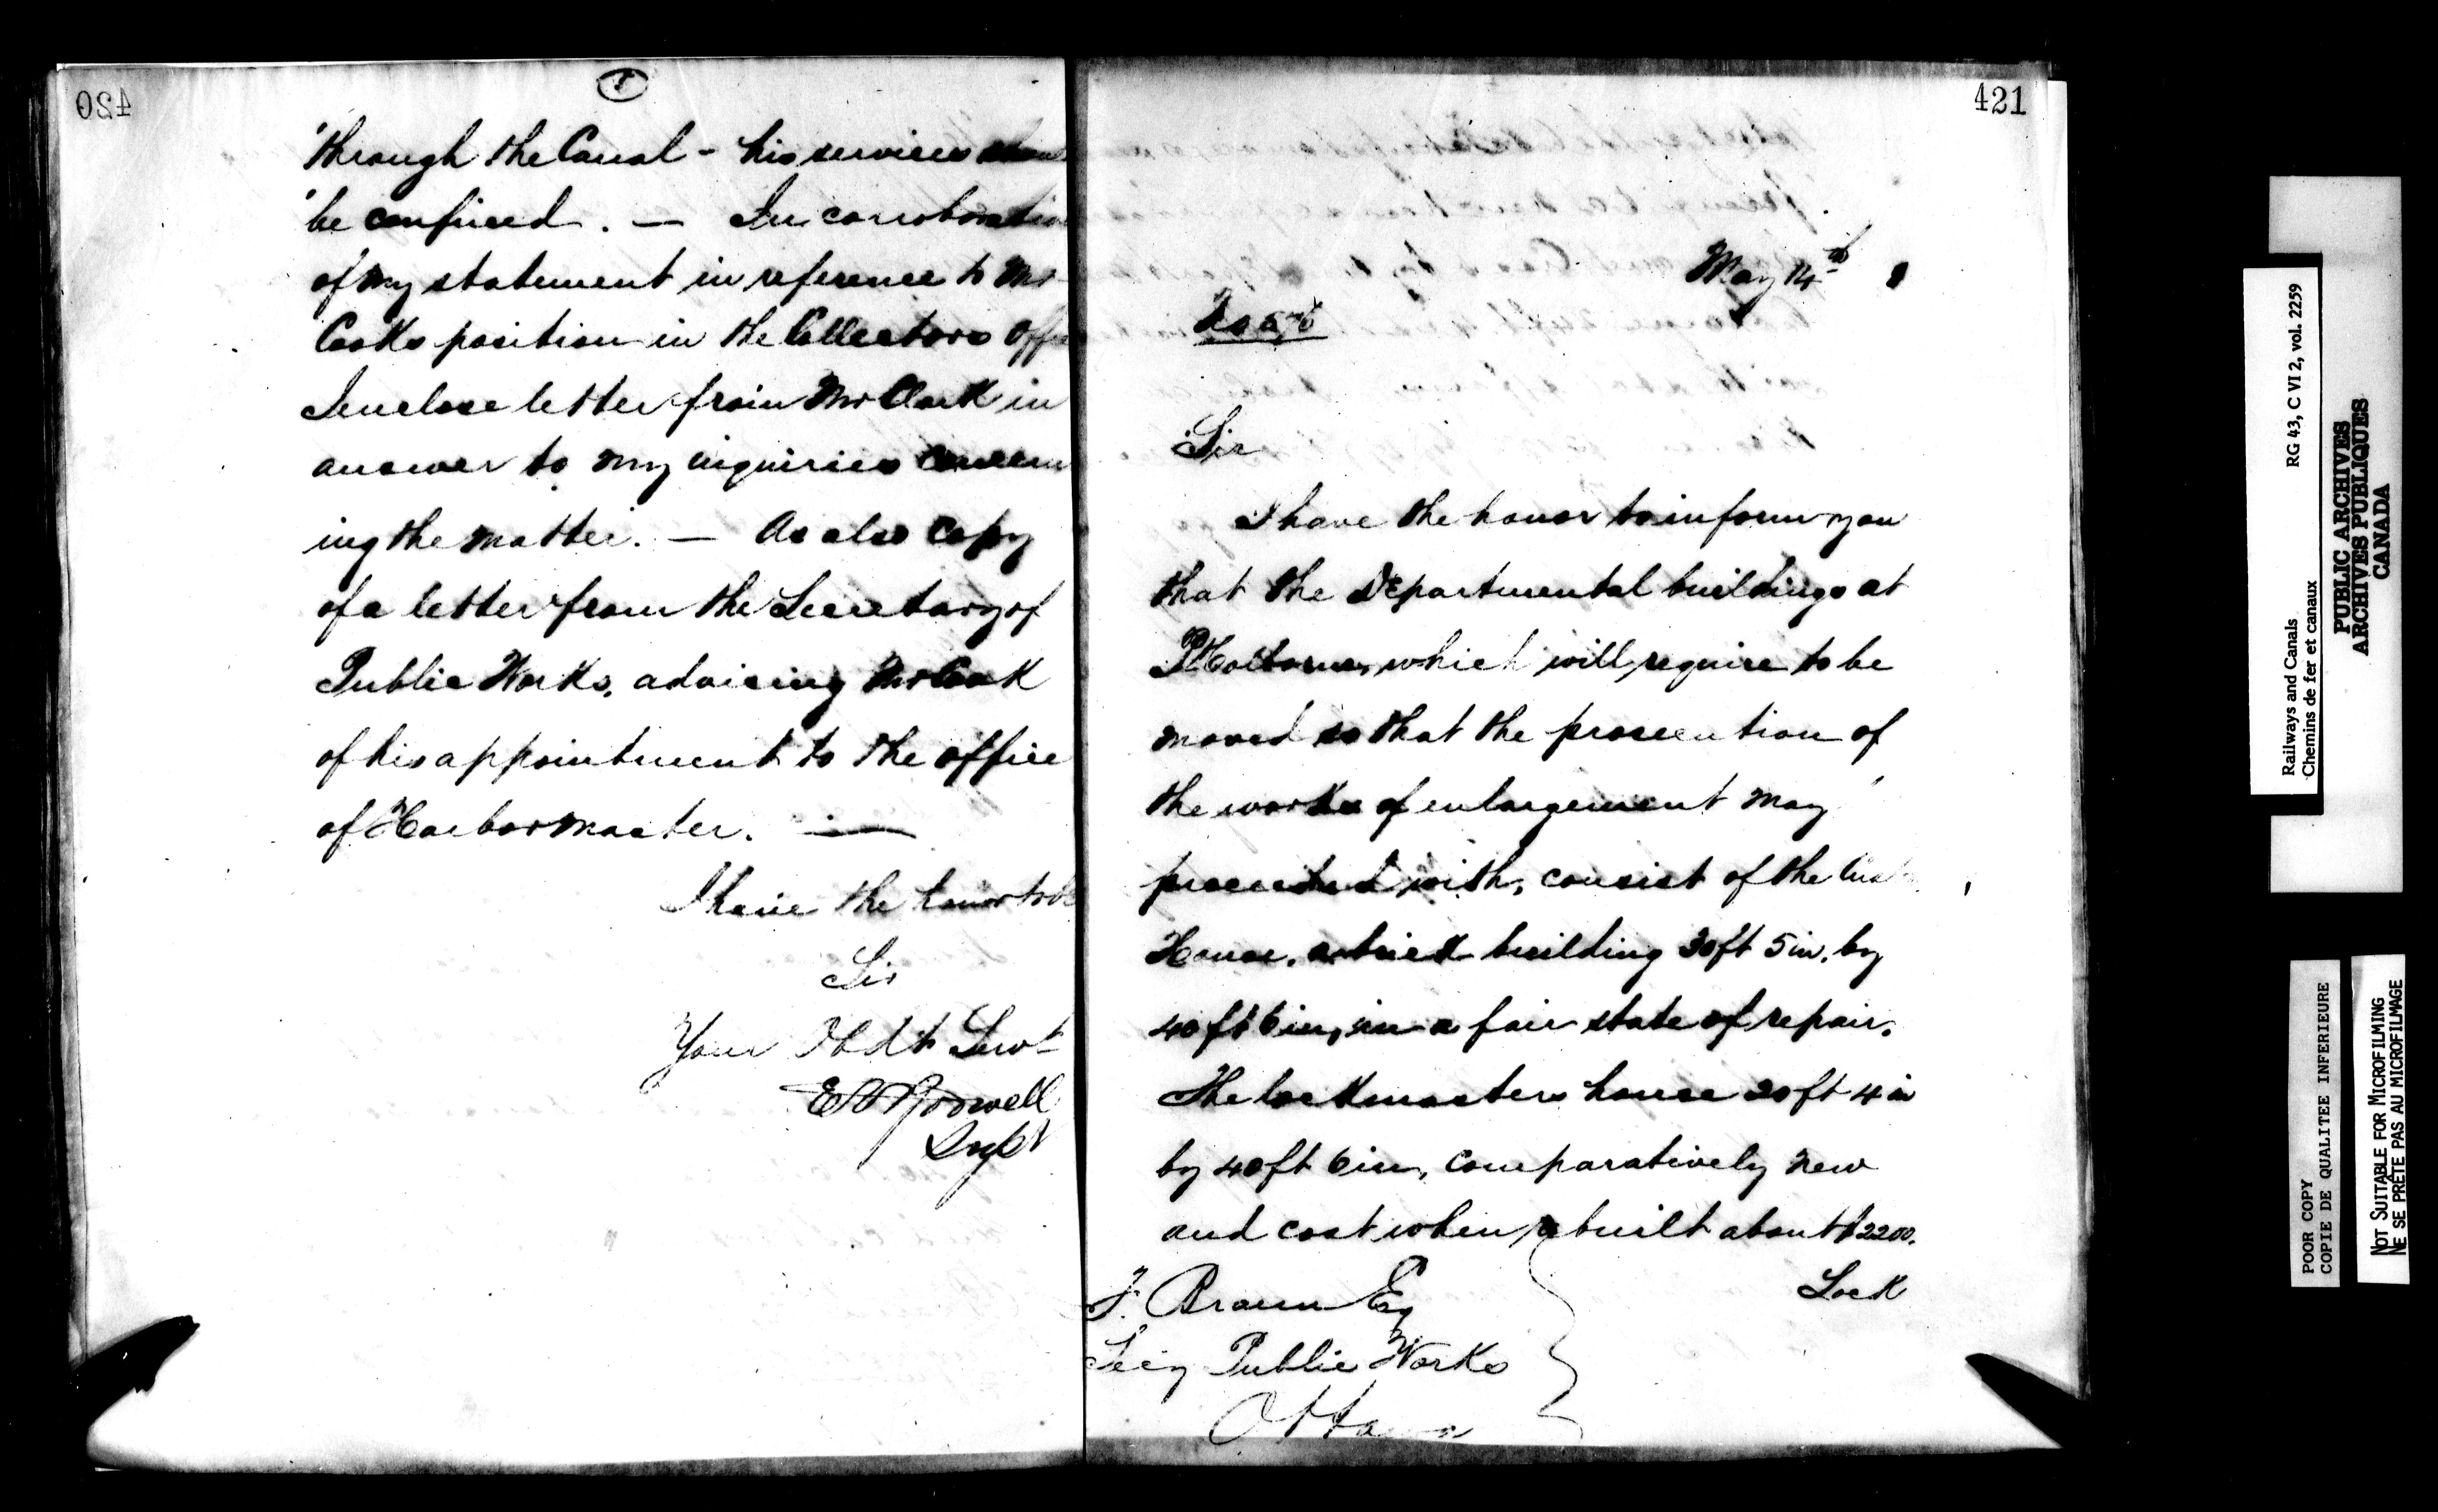 420
'through the Canal - his services
'be confined. — In corroboration
of my statement in reference to Mr
Cooks position in the Collectors Office
I enclose letter from Mr Clark in
answer to my inquiries concern
ing the matter. — As also Copy
of a letter from the Secretary of
Public Works, advising Mr Cook
of his appointment to the office
of Harbor master. —
I have the honor to be
Sir
Your Obdt Servt
E Bodwell
Supt
421
May 14th
Sir
I have the honor to inform you
that the Departmental buildings at
Pt Colborne, which will require to be
moved so that the prosecution of
the works of enlargement may
proceeded with, consist of the
House, a brick building 30ft 5in. by
40ft 6in, in a fair state of repair.
The lockmasters house 20ft 4in
by 40ft 6in, comparatively new
and cost when built about $2200.
Lock
F. Braun Esq
Secy Public Works
Ottawa
Railways and Canals RG 43, C VI 2, vol. 2259
Chemins de fer et canaux
PUBLIC ARCHIVES
ARCHIVES PUBLIQUES
CANADA
POOR COPY
COPIE DE QUALITEE INFERIEURE
NOT SUITABLE FOR MICROFILMING
NE SE PRÊTE PAS AU MICROFILMAGE